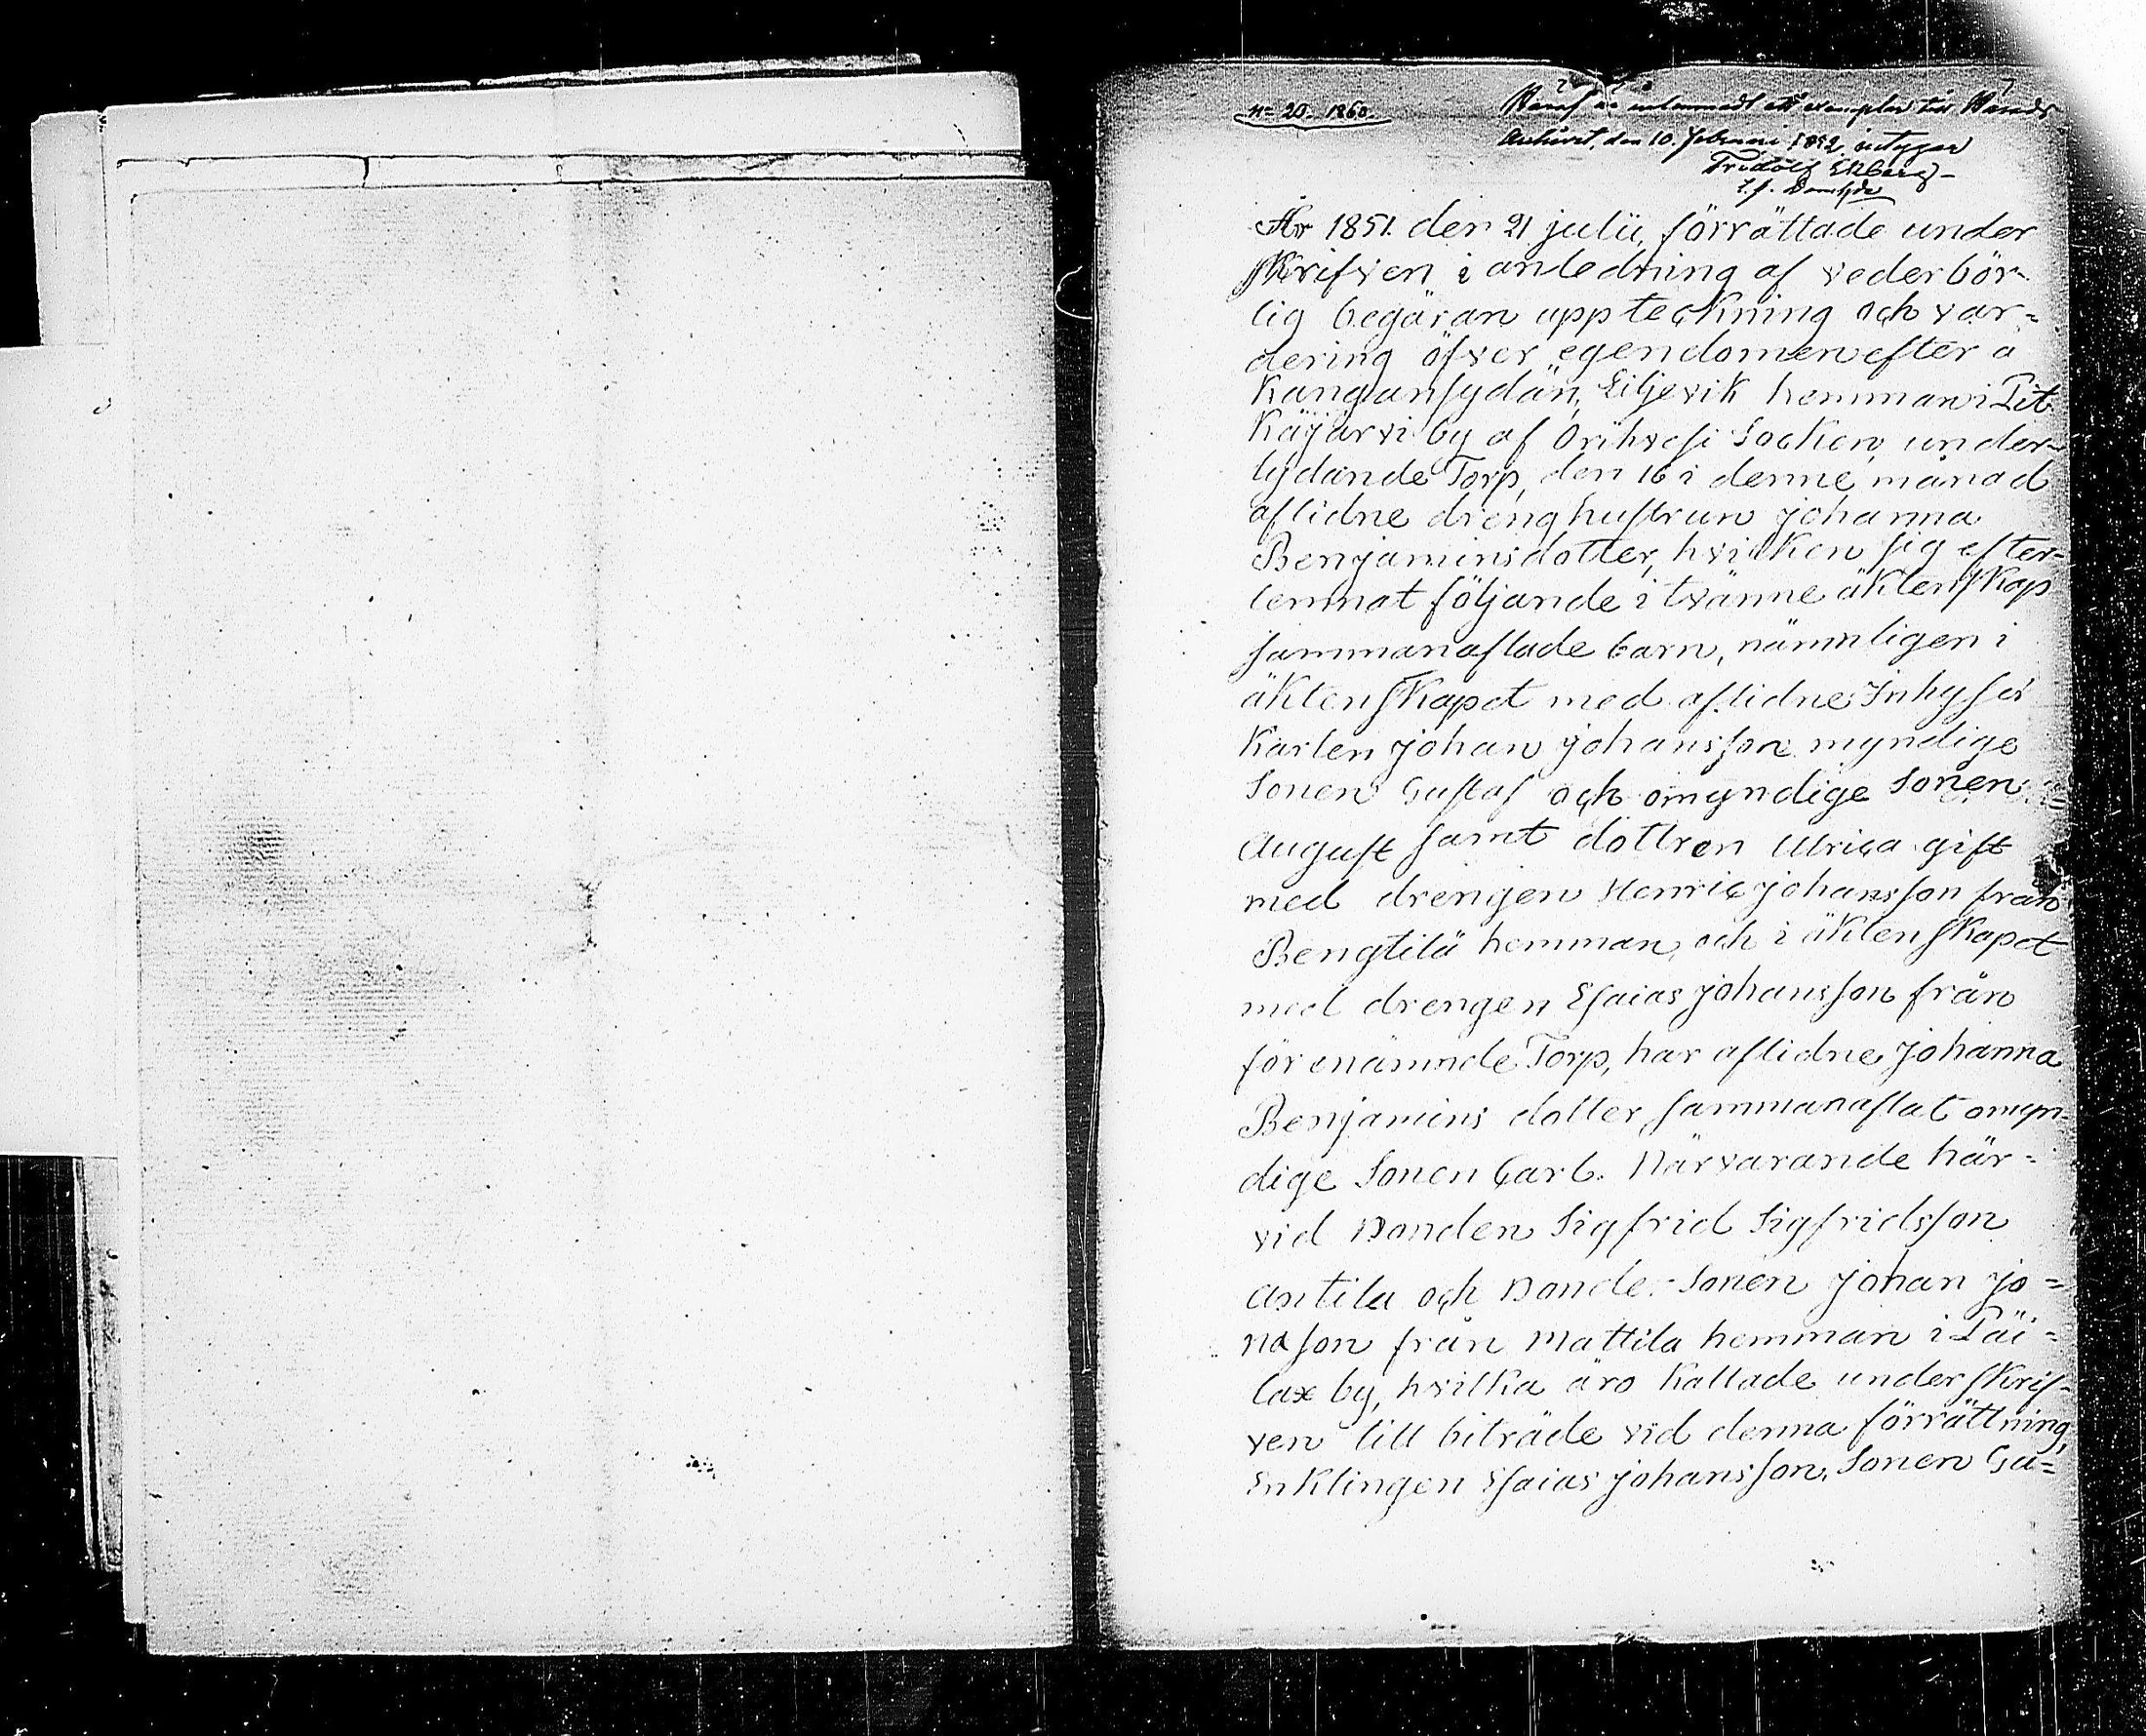 No 20. 1860.
Häraf är inlemnadt ett exemplar till Härads
Archivet, den 10. Februari 1852, intygar
Fridolf Ekberg
t. f. Domhfde
År 1851. den 21 julii, förrättade under
skrifven i anledning af vederbör-
lig begäran uppteckning och vär-
dering öfver egendomen efter a
Kangansydän, Liljevik hemman i Pit
käjärvi by af Orihvesi Socken, under-
lydande Torp, den 16 i denne månad
aflidne drenghustrun Johanna
Benjaminsdotter, hvilken sig efter-
lemnat följande i tvänne äktenskap
sammanaflade barn, nämnligen i
äktenskapet med aflidne Inhyses
Karlen Johan Johansson myndige
Sonen Gustaf och omyndige Sonen
August samt dottren Ulrica gift
med drengen Henric Johansson från
Bengtilä hemman, och i äktenskapet
med drengen Esaias Johansson från
förenämnde Torp, har aflidne Johanna
Benjamins dotter, sammanaflat omyn-
dige Sonen Carl. Närvarande här-
vid Bonden Sigfrid Sigfridsson
Antila och Bonde-Sonen Johan Jo=
nasson från Mattila hemman i Päi=
lax by, hvilka äro kallade underskrif-
ven till biträde vid denna förrättning,
Enklingen Esaias Johansson, Sonen Gu=